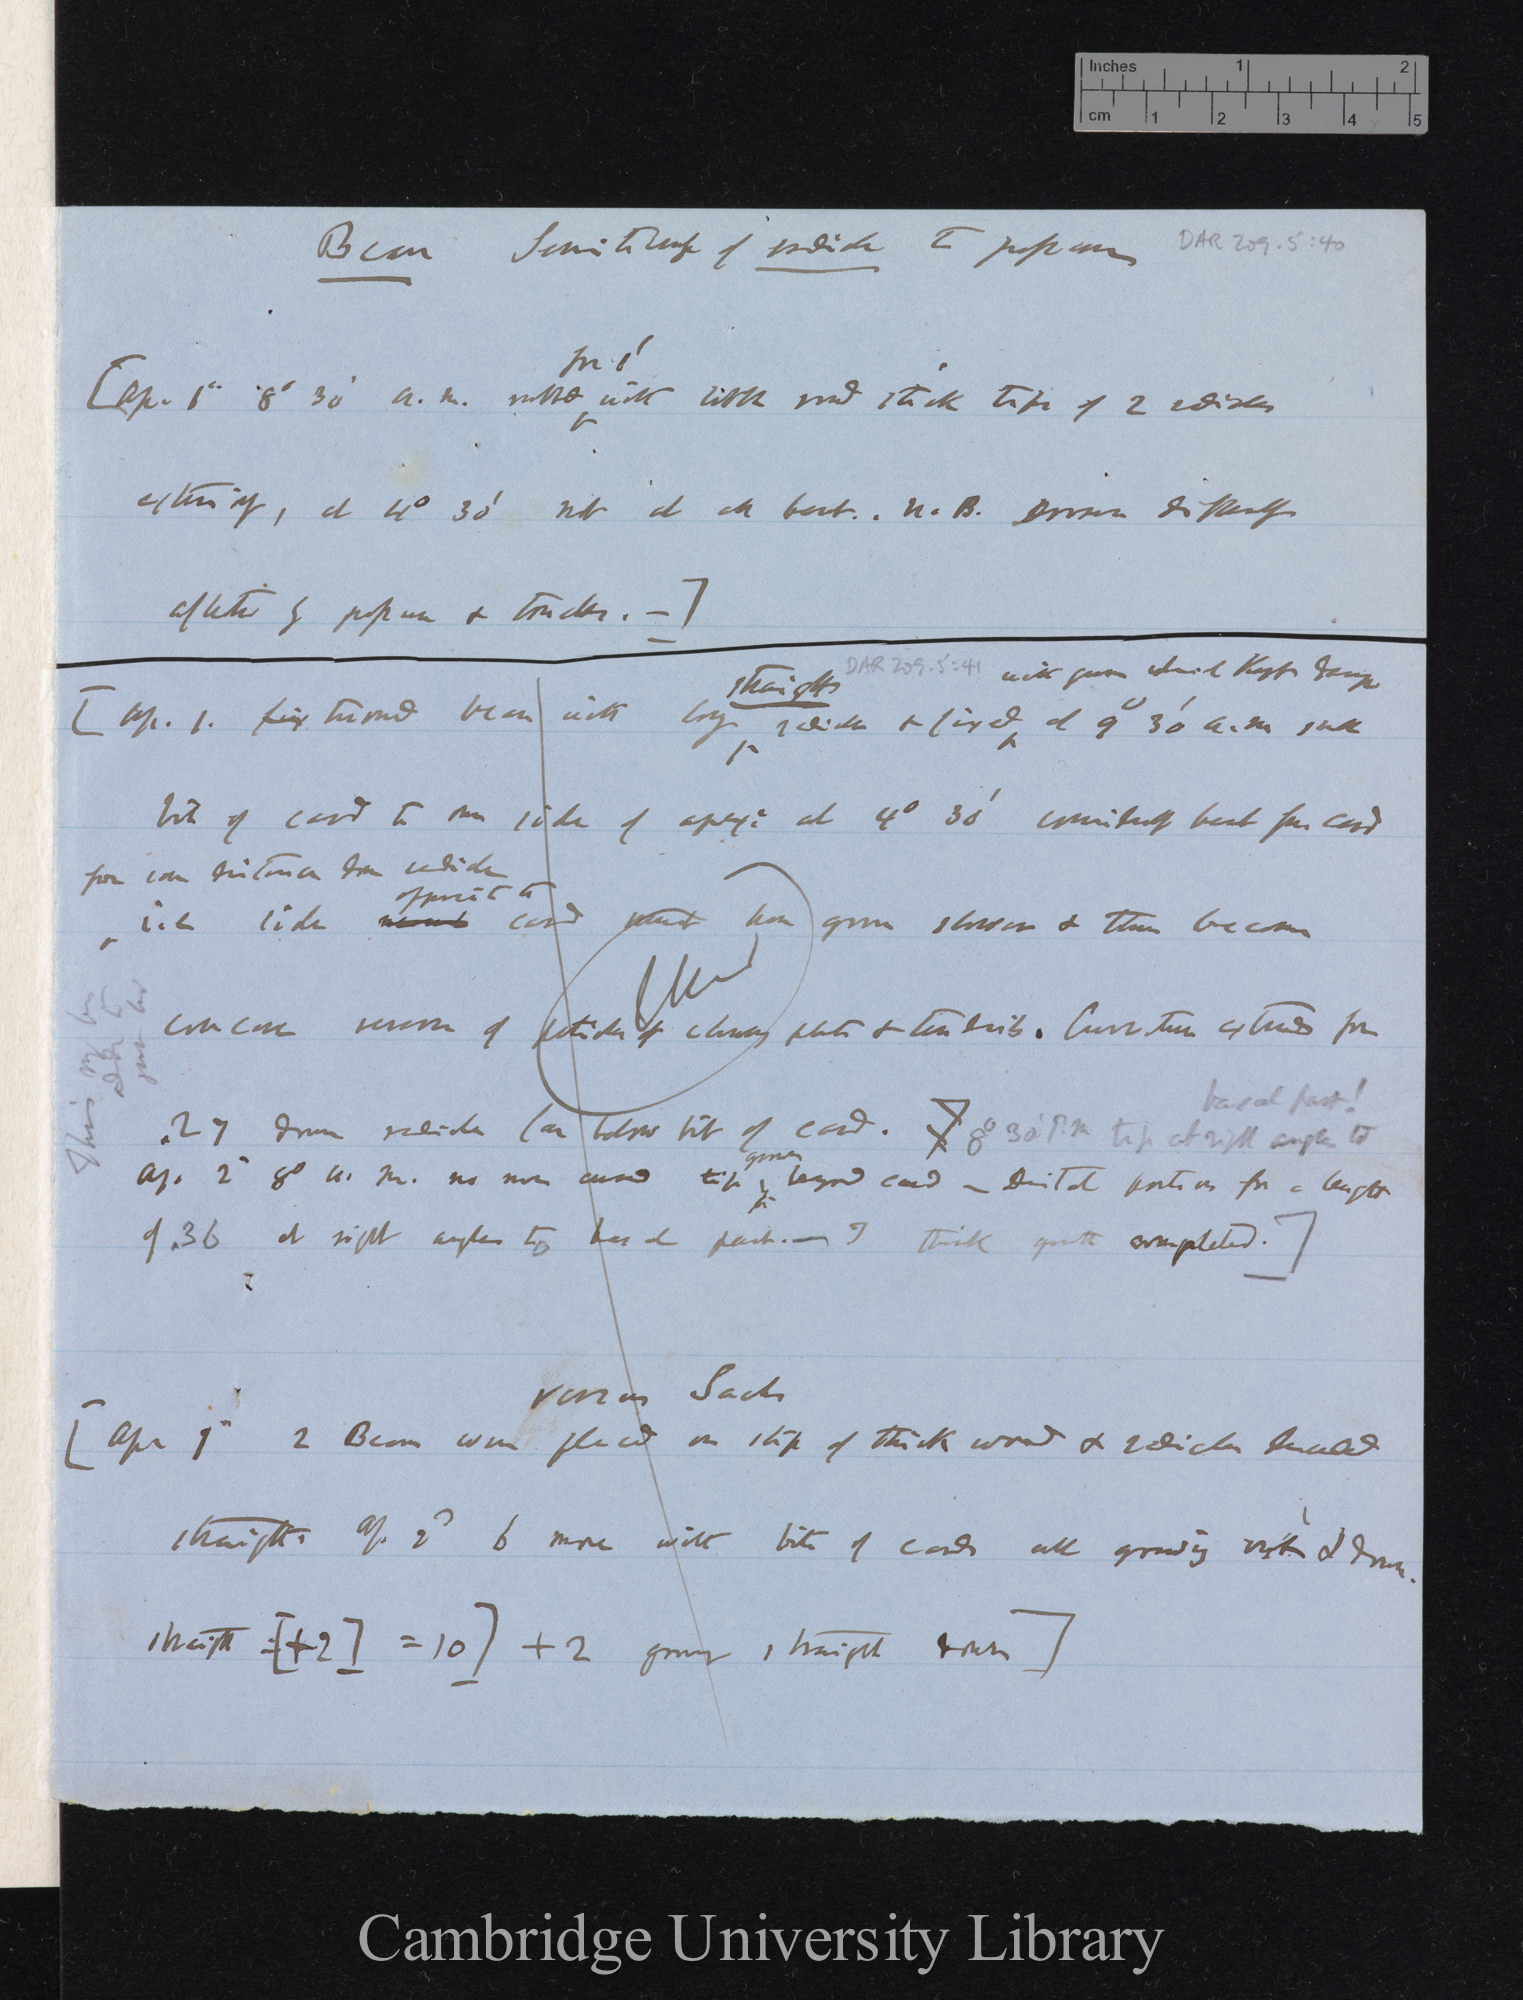 Inches 1 2
cm 1 2 3 4 5
Bean Sensitiveness of radicle to pressure DAR 209.5:40
for 1'
[Ap. 1st 8° 30' a.m. rubbed with little rod stick tips of 2 radicles
, at 4° 30' not at all bent.. N.B. differently
affected by pressure & touches. —]
straight DAR 209.5:41 with gum which kept damp
[Ap. 1. bean with long radicle & fixed at 9° 30' a.m. small
bit of card to one side of apex: at 4° 30' considerably bent from card
for some distance down radicle
opposite to
i.e. side card must have grown slower & then become
concave reverse of petioles of climbing plants & tendrils. Curvature extends for
basal part!
.27 down radicle below bit of card. 8° 30' P.M tip at right angles to
grown
Ap. 2 8° a.m. no more curved tip beyond card — distal portion for a length
of .36 at right angles to basal part. — I think growth completed.]
This may be
versus Sachs
[Apr 1st 2 Beans were placed on slip of thick wood & radicles
straight. Ap. 2d 6 more with bits of cards all growing & down.
straight [+2] = 10] + 2 growing straight down]
Cambridge University Library